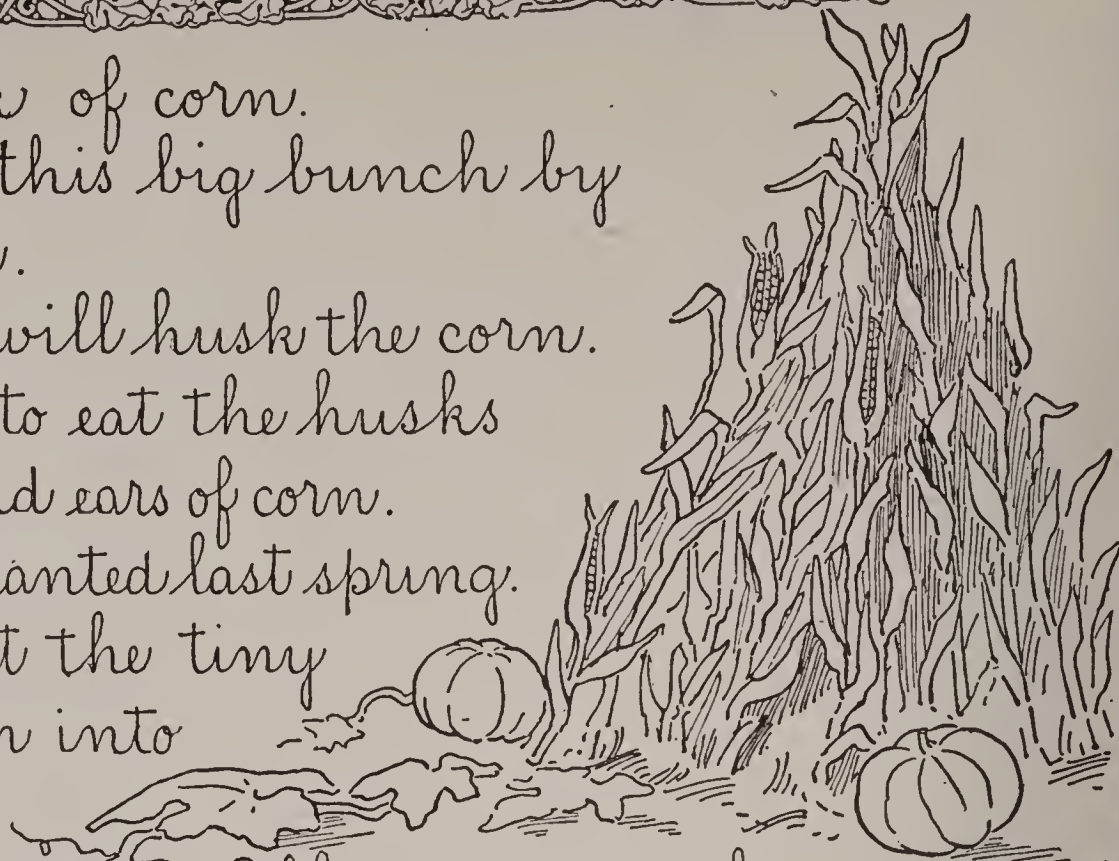 of corn.
this big bunch by
will husk the corn.
to eat the husks
ears of corn.
last spring.
the tiny
into